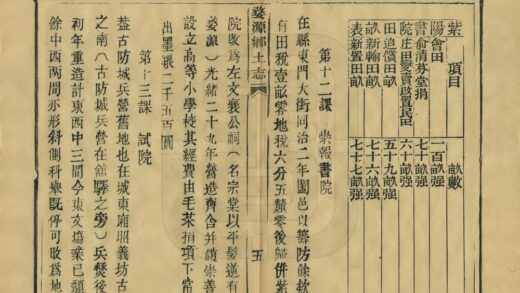 紫 項目 畝數
陽 會田 一百畝強
書 俞清芬堂捐 七十畝強
院 庄田變賣改置民田 六十畝強
田 追償田畝 五十九畝強
畝 新輸田畝 七十六畝強
表 新置田畝 七十七畝強
第十二課 崇報書院
在縣東門大街同治二年闔邑以籌防餘款
有田稅壹畝零地稅六分五釐零後歸併紫
婺源鄉土志 五
院改爲左文襄公祠(名宗棠以平髮逆有
婺源)光緒二十九年營造齋舍并請崇善
設立高等小學校其經費由毛茶捐項下常
出墨銀二千五百圓
第十三課 試院
葢古防城兵營舊地也在城東廂昭義坊古
之南(古防城兵營在館驛之旁)兵燹後
利年重造計東西中三間今東文塲業已頹
餘中西兩間亦形斜側科舉既停可改爲地